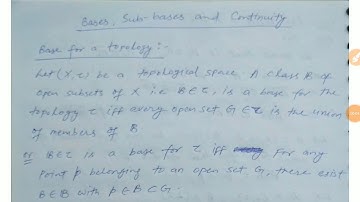 Bases, Sub-bases and Continuity
Base for a topology:-
Let (X, τ) be a topological space. A class B of
open subsets of X i.e B∈τ, is a base for the
topology τ iff every open set G∈τ is the union
of members of B
or B∈τ is a base for τ iff For any
point p belonging to an open set G, there exist
B∈B with p∈B⊂G.